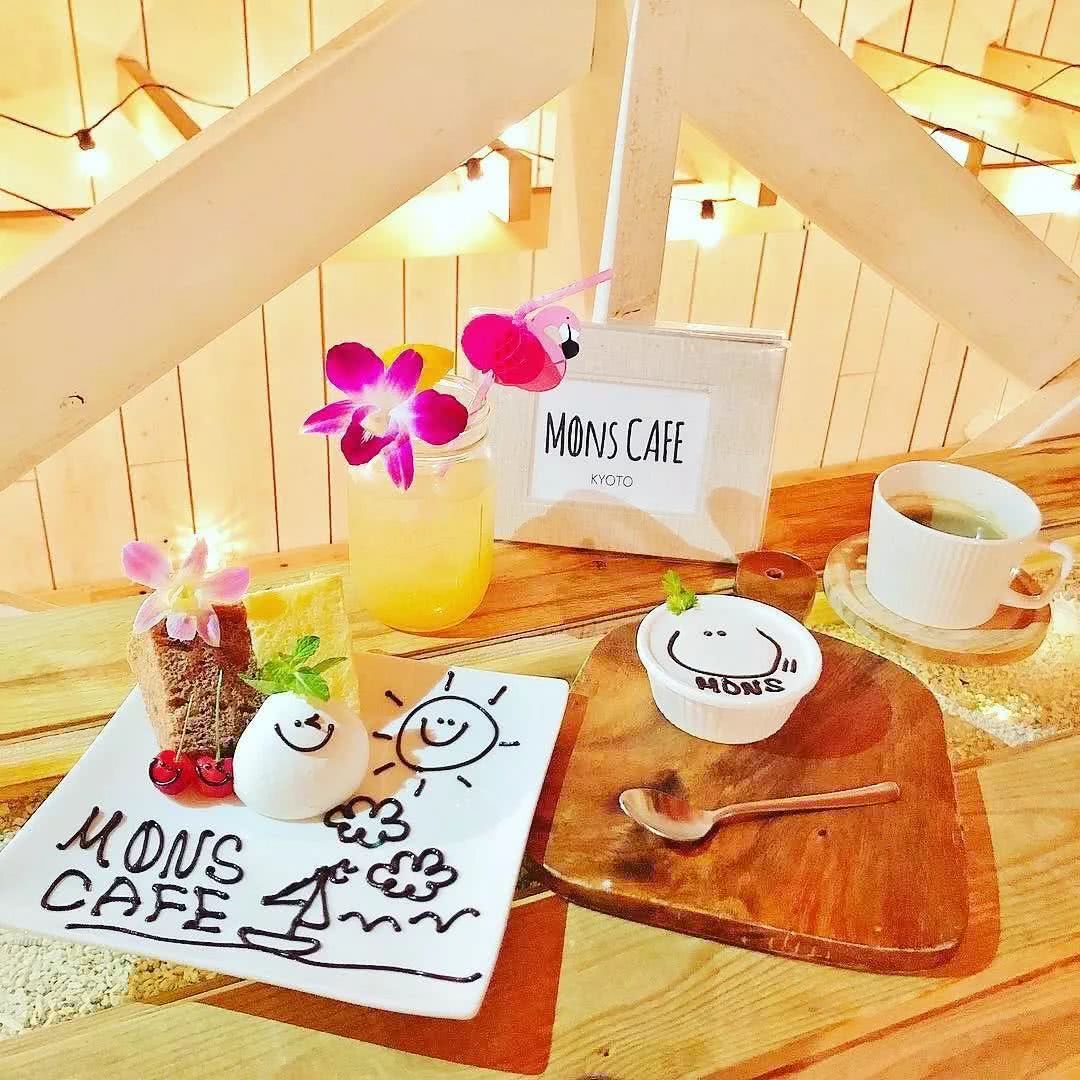 MONS CAFE
KYOTO
MONS
MONS
CAFE